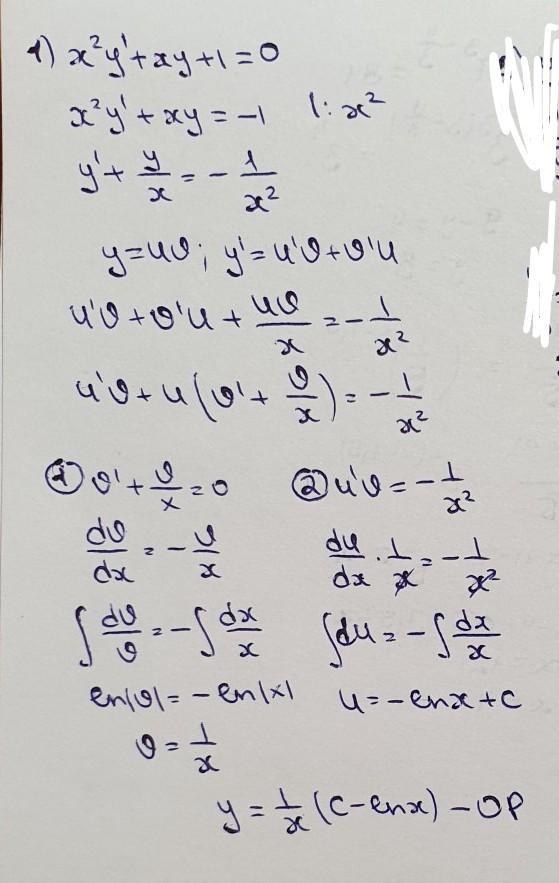 1) x²y' + xy + 1 = 0
x²y' + xy = -1 | : x²
y' + y/x = - 1/x²
y = uv; y' = u'v + v'u
u'v + v'u + uv/x = - 1/x²
u'v + u(v' + v/x) = - 1/x²
① v' + v/x = 0
dv/dx = - v/x
∫ dv/v = - ∫ dx/x
ln|v| = - ln|x|
v = 1/x
② u'v = - 1/x²
du/dx · 1/x = - 1/x²
∫ du = - ∫ dx/x
u = - lnx + C
y = 1/x (C - lnx) - OP